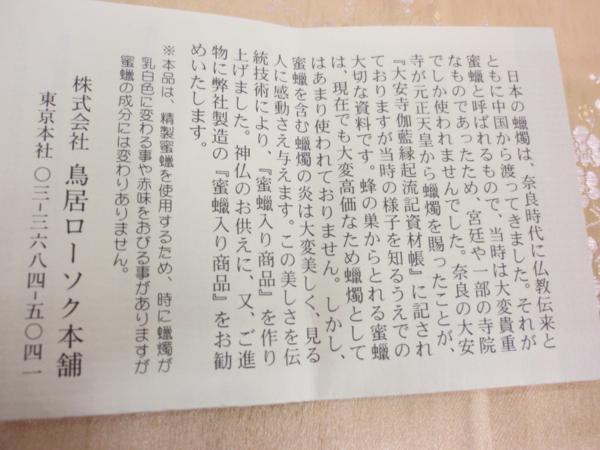 日本の蠟燭は、奈良時代に仏教伝来と
ともに中国から渡ってきました。それが
蜜蠟と呼ばれるもので、当時は大変貴重
なものであったため、宮廷や一部の寺院
でしか使われませんでした。奈良の大安
寺が元正天皇から蠟燭を賜ったことが、
『大安寺伽藍縁起流記資材帳』に記され
ておりますが当時の様子を知るうえでの
大切な資料です。蜂の巣からとれる蜜蠟
は、現在でも大変高価なため蠟燭として
はあまり使われておりません。しかし、
蜜蠟を含む蠟燭の炎は大変美しく、見る
人に感動さえ与えます。この美しさを伝
統技術により、『蜜蠟入り商品』を作り
上げました。神仏のお供えに、又、ご進
物に弊社製造の『蜜蠟入り商品』をお勧
めいたします。
※本品は、精製蜜蠟を使用するため、時に蠟燭が
乳白色に変わる事や赤味をおびる事がありますが
蜜蠟の成分には変わりありません。
株式会社 鳥居ローソク本舗
東京本社 〇三-三六八四-五〇四一